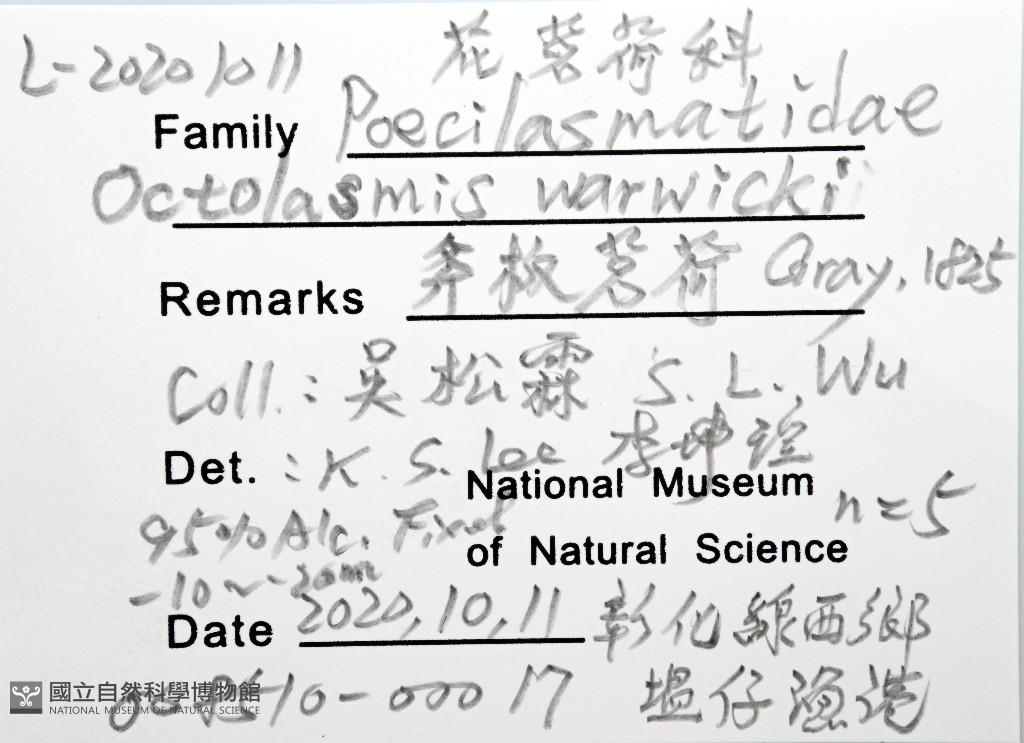 L-20201011 花茗荷科
Family Poecilasmatidae
Octolasmis warwickii
Remarks 斧板茗荷 Gray, 1825
Coll.: 吳松霖 S. L. Wu
Det. : K. S. Lee 李坤瑄
National Museum
95% Alc. Fixed n=5
of Natural Science
-10~-20m
Date 2020,10,11 彰化線西鄉
10-00017 塭仔漁港
國立自然科學博物館
NATIONAL MUSEUM OF NATURAL SCIENCE